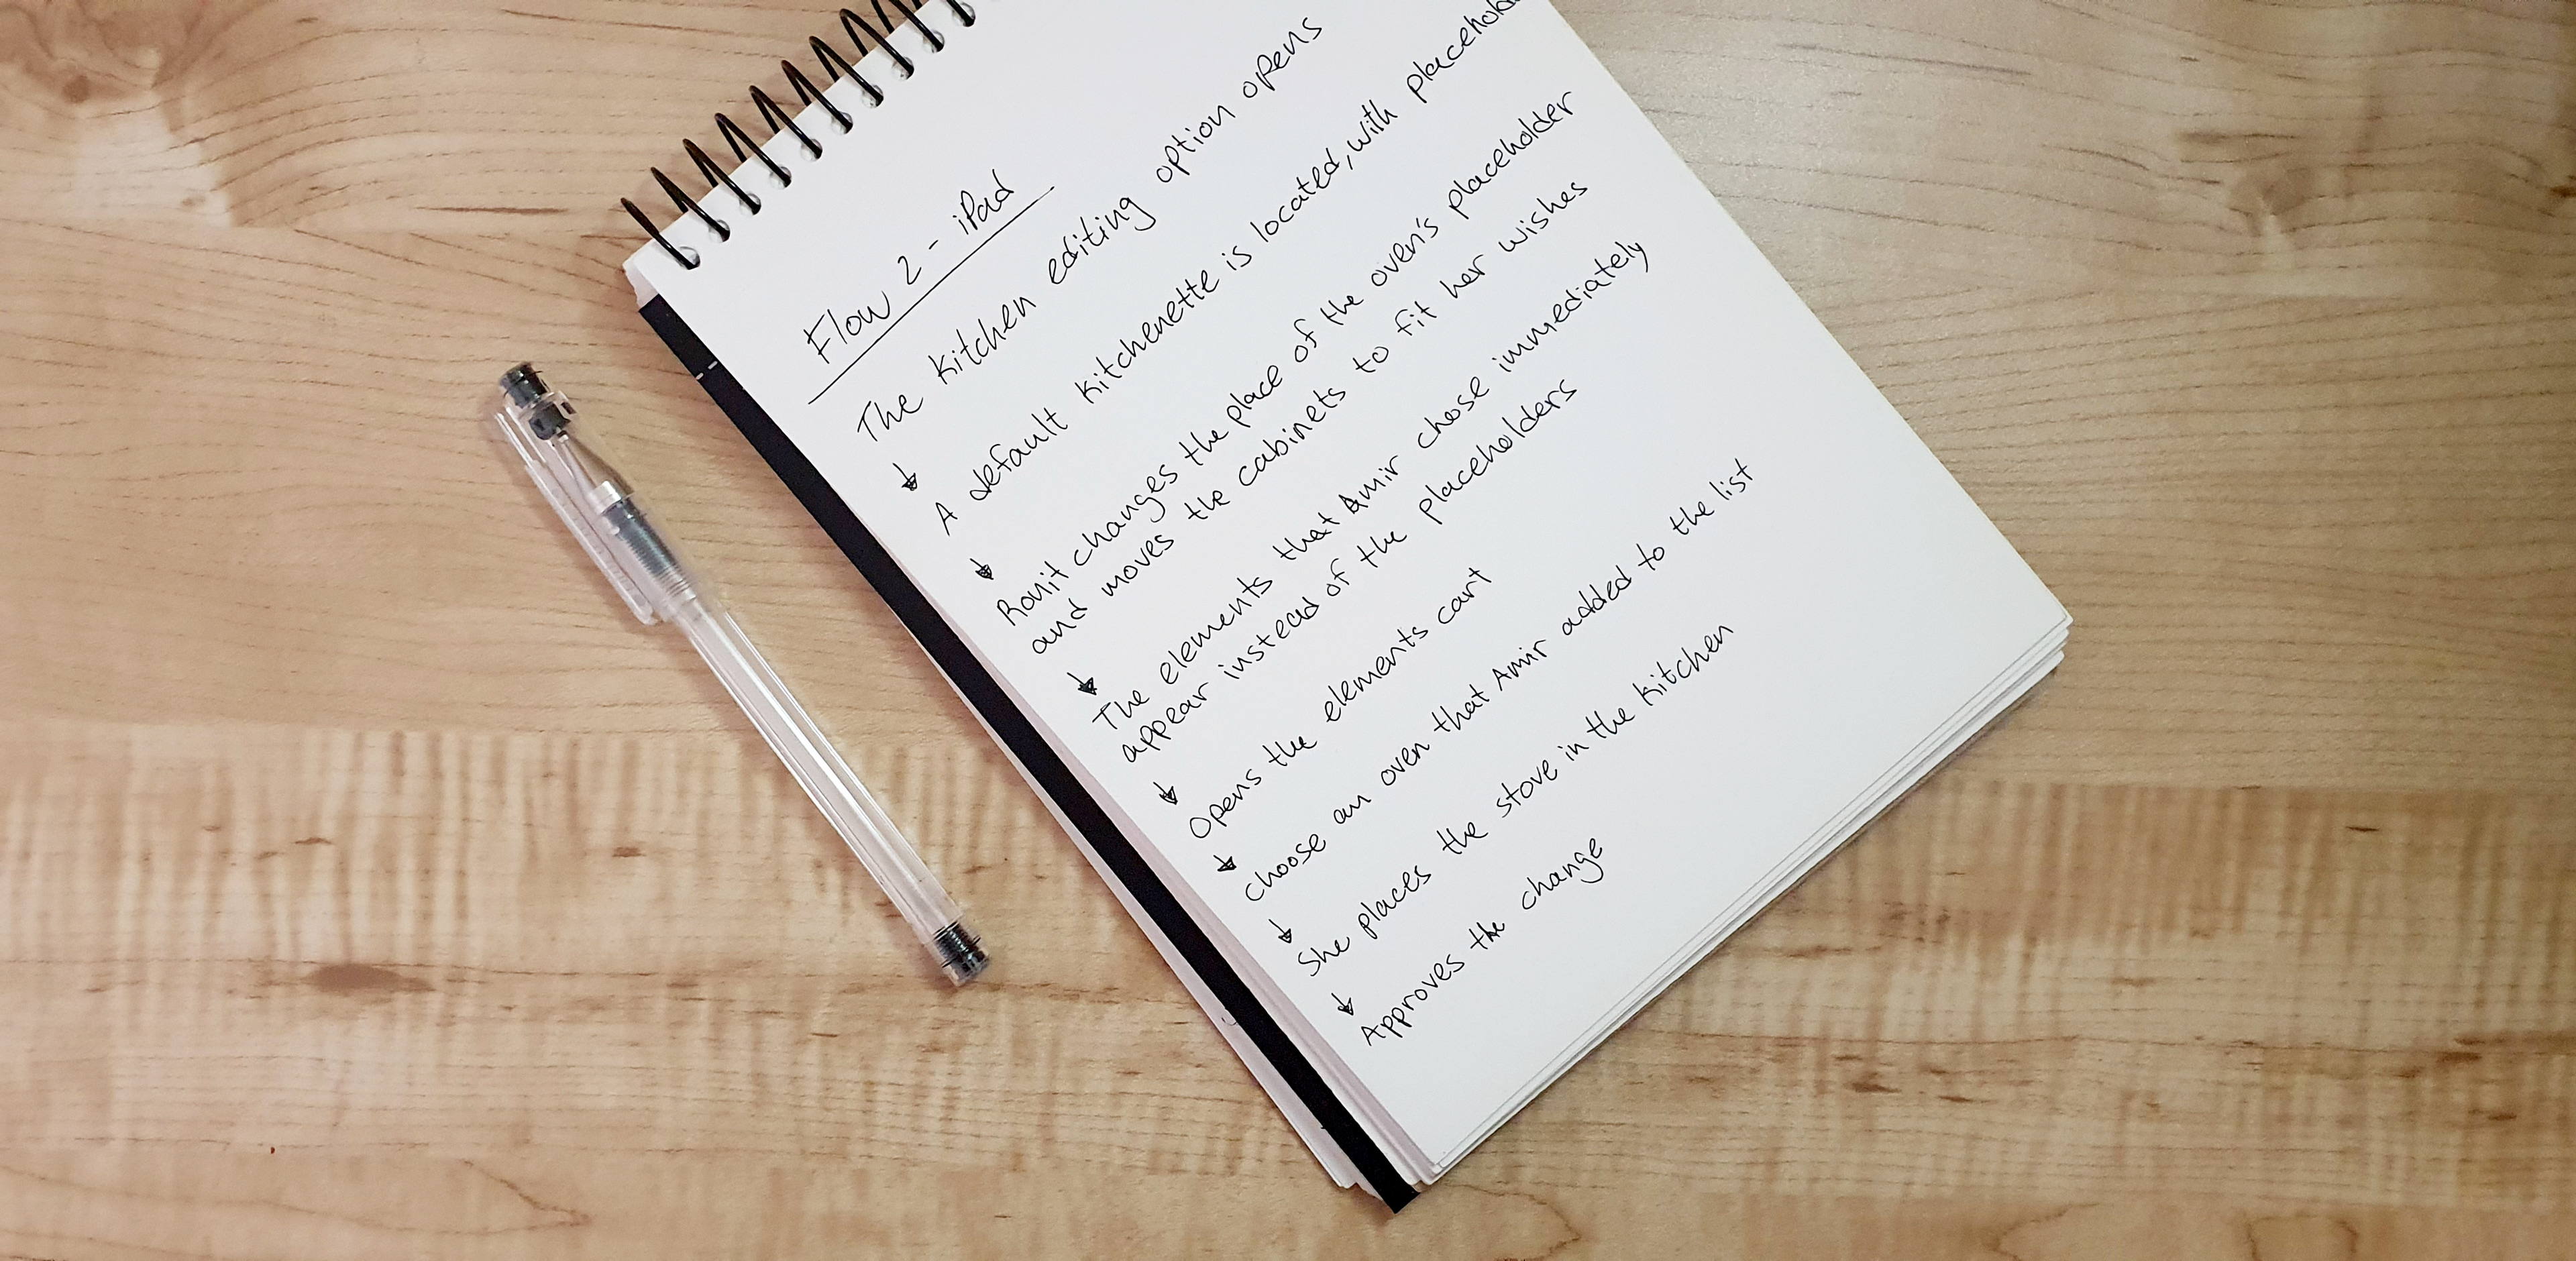 Flow 2 - iPad
The kitchen editing option opens
↓
A default kitchenette is located, with
↓
Ronit changes the place of the oven's placeholder
and moves the cabinets to fit her wishes
↓
The elements that Amir chose immediately
appear instead of the placeholders
↓
Opens the elements cart
↓
Choose an oven that Amir added to the list
↓
She places the stove in the kitchen
↓
Approves the change